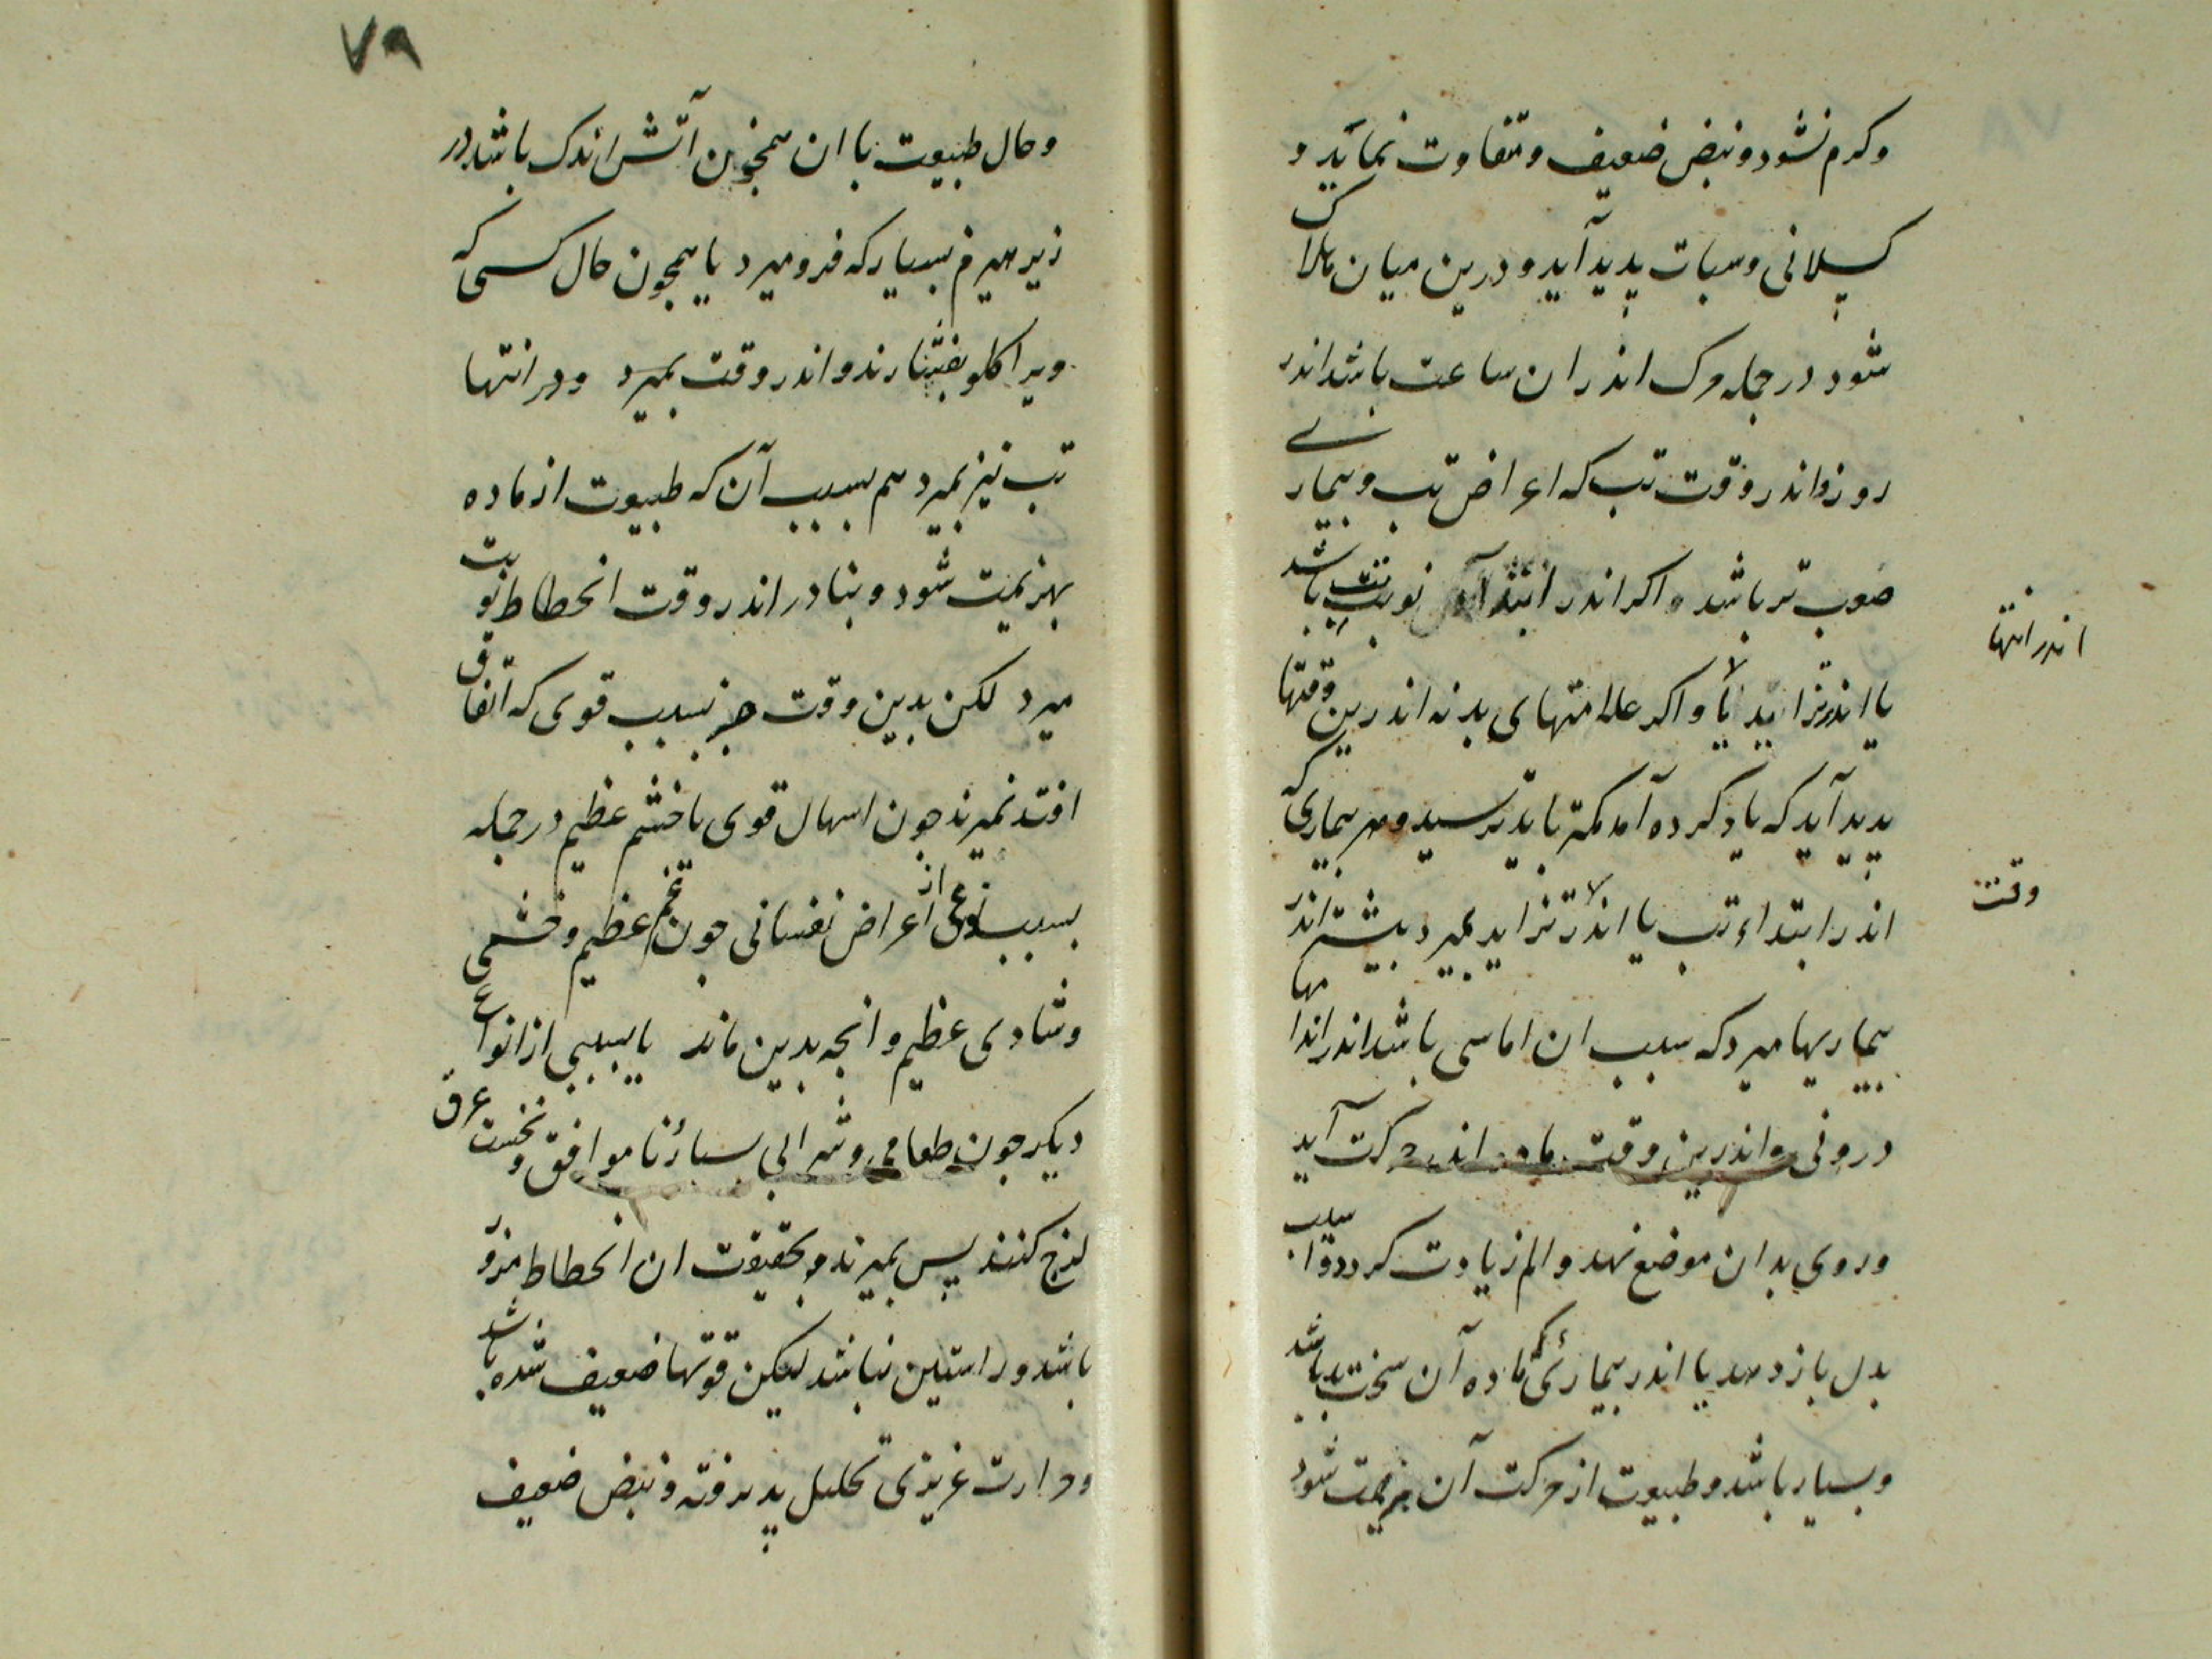 وکرم نشود ونبض ضعیف ومتفاوت نماید و
کسلانی وسبات پدید آید ودرین میان هلاک
شود درجمله مرک اندر ان ساعت باشد اندر
روز واندر وقت تب که اعراض تب وبیماری
صعب تر باشد واکر اندر ابتداء نوبت باشد
یا اندر تزاید یا واکر علامتهای بد نه اندرین وقتها
پدید آید که یاد کرده آمد کمتر باید ترسید وهر بیماری که
اندر ابتداء تب یا اندر تزاید بمیرد بیشتر اندر
بیماریها میرد که سبب ان اماسی باشد اندر اندامها
درونی واندرین وقت ماده اندر حرکت آید
وروی بدان موضع نهد والم زیادت کردد
بدل باز دهد یا اندر بیماری که ماده آن سخت بد باشد
وبسیار باشد وطبیعت از حرکت آن بهزیمت شود
اندر انتها
وقت
۷۹
وحال طبیعت با ان همچون آتش اندک باشد در
زیر هیزم بسیار که فرو میرد یا همچون حال کسی که
ویرا کلو بفشارند واندر وقت بمیرد ودر انتها
تب نیز بمیرد هم بسبب آن که طبیعت از ماده
بهزیمت شود وبنادر اندر وقت انحطاط نوبت
میرد لکن بدین وقت جز بسبب قوی که اتفاق
افتد نمیرند جون اسهال قوی یا خشم عظیم درجمله
بسبب نوعی از اعراض نفسانی جون غم عظیم وخشمی
وشادی عظیم وانجه بدین ماند یا بسببی از انواع
دیکر جون طعامی وشرابی بسیار ناموافق ونخست عرق
لزج کنند پس بمیرند وبحقیقت ان انحطاط مزور
باشد وراستین نباشد لیکن قوتها ضعیف شده باشد
وحرارت غریزی تحلیل پذیرفته ونبض ضعیف